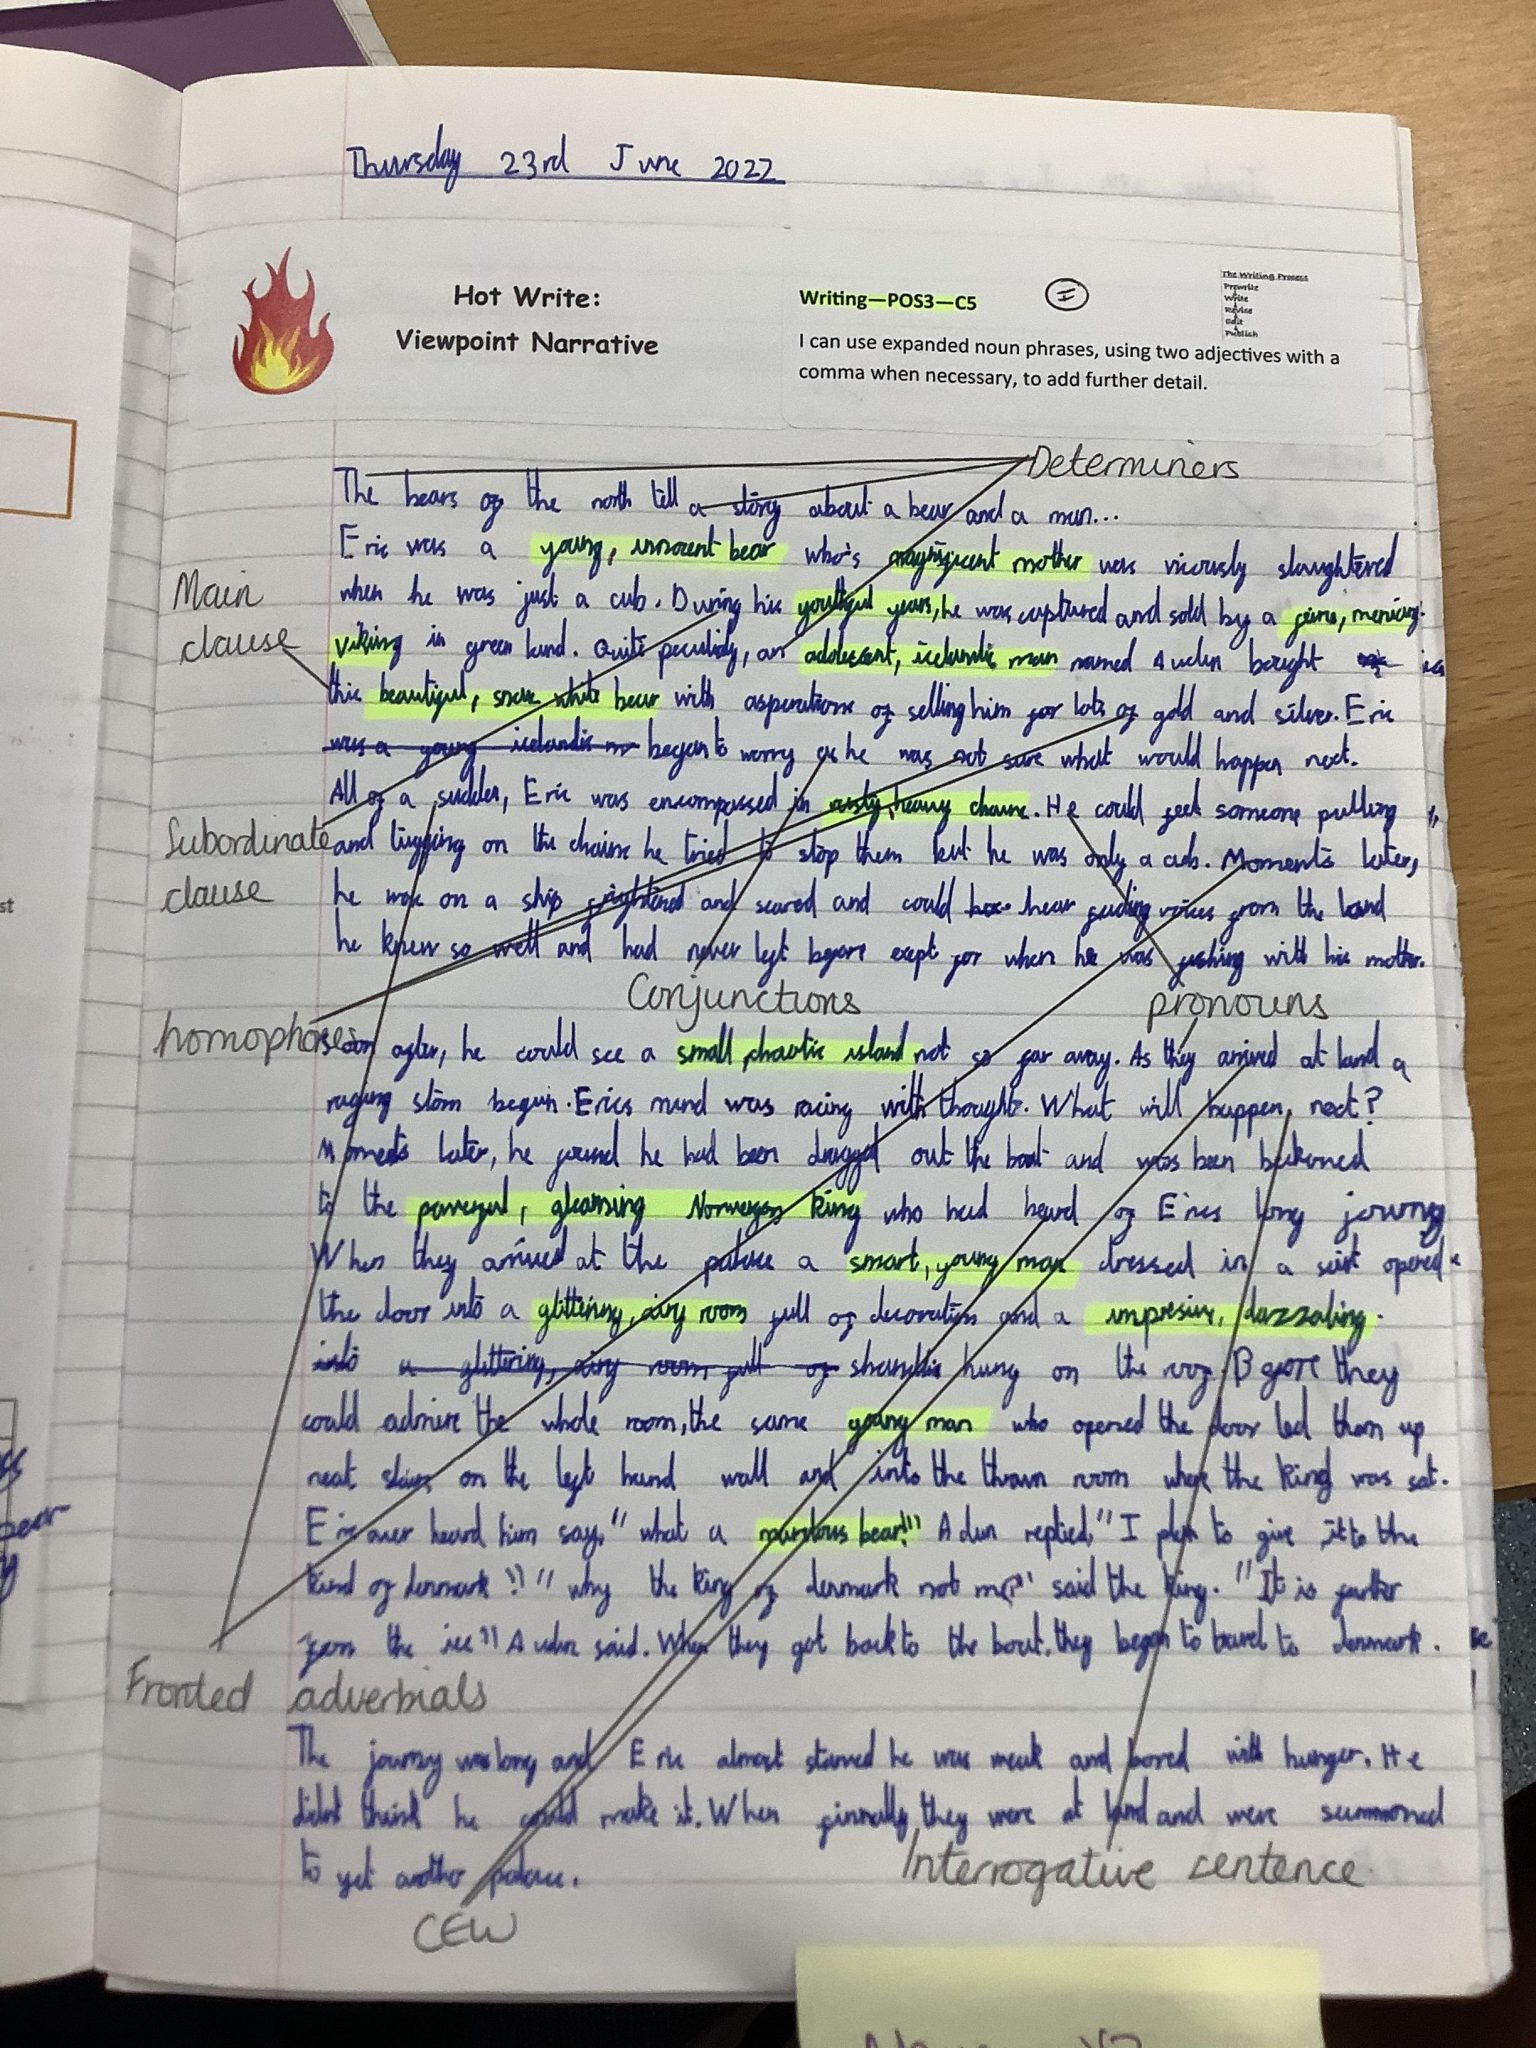 Thursday 23rd June 2022
Hot Write:
Viewpoint Narrative
Writing—POS3—C5
I
The Writing Process
Prewrite
Write
Revise
Edit
Publish
I can use expanded noun phrases, using two adjectives with a
comma when necessary, to add further detail.
Determiners
The bears of the north tell a story about a bear and a man...
Eric was a young, innocent bear who's magnificent mother was vicously slaughtered
Main
when he was just a cub. During his youthful years, he was captured and sold by a
clause
viking in green land. Quite peculialy, an adolescent, icelandic man named Auden bought
this beautiful, snow white bear with asperations of selling him for lots of gold and silver. Eric
was a young icelandic m began to worry as he was not sure what would happen next.
All of a sudden, Eric was encompassed in rusty, heavy chains. He could feel someone pulling
Subordinate
clause
and tugging on the chains he tried to stop them but he was only a cub. Moments later,
he was on a ship frightened and scared and could hear fading voices from the land
he knew so well and had never left before exept for when he was fishing with his mother.
Conjunctions
pronouns
homophones
soon after, he could see a small, chaotic island not so far away. As they arrived at land a
raging storm begun. Erics mind was racing with thoughts. What will happen next?
Moments later, he found he had been dragged out the boat and was been beckoned
to the powerful, gleaming Norwegen king who had heard of Erics long journy
When they arrived at the palace a smart, young man dressed in a suit opened
the door into a glittering, airy room full of decorations and a impresive, dazzaling
into a glittering, airy room full of hung on the roof. Before they
could admire the whole room, the same young man who opened the door led them up
neat stairs on the left hand wall and into the thrown room where the king was sat.
Eric over heard him say, "what a bear!" Adun replied, "I plan to give it to the
kind of denmark!" "why the king of denmark not me?" said the king. "It is farther
from the ice" Auden said. When they got back to the boat, they began to travel to denmark.
Fronted adverbials
The journy was long and Eric almost starved he was weak and bored with hunger. He
didnt think he could make it. When finnally, they were at land and were summoned
to yet another palace.
Interrogative sentence
CEW